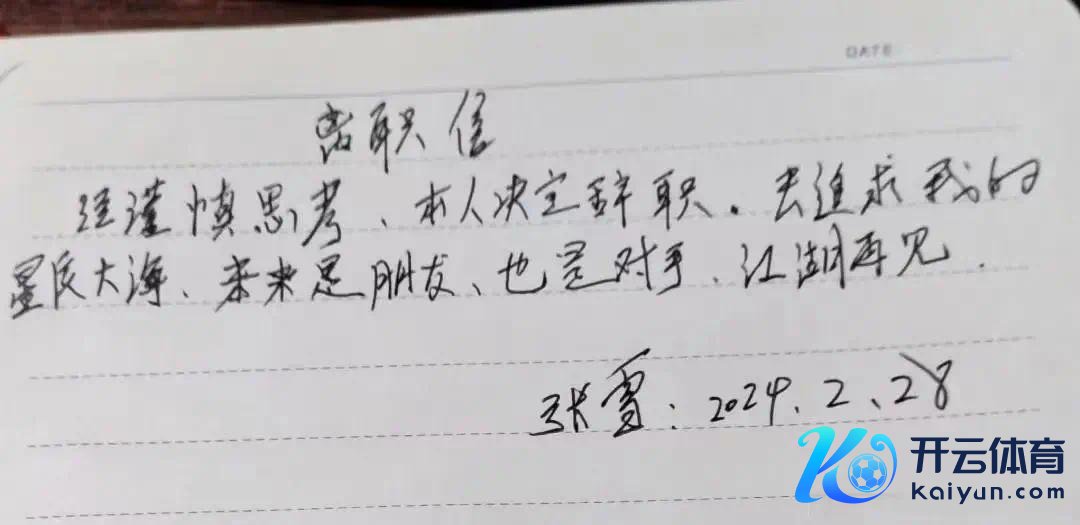 DATE
离职信
经谨慎思考、本人决定辞职。去追求我的
星辰大海、未来是朋友、也是对手、江湖再见.
张雪：2024.2、28
开云体育
kaiyun.com